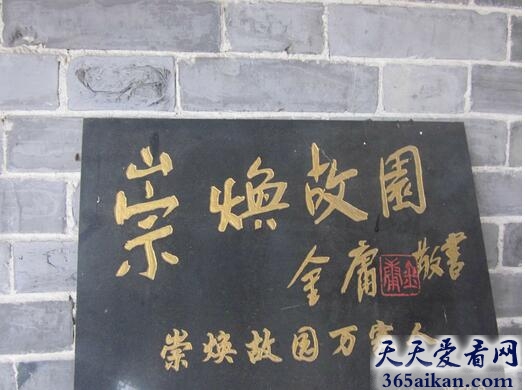 崇焕故園
金庸敬书
崇焕故园万
天天爱看网
365aikan.com